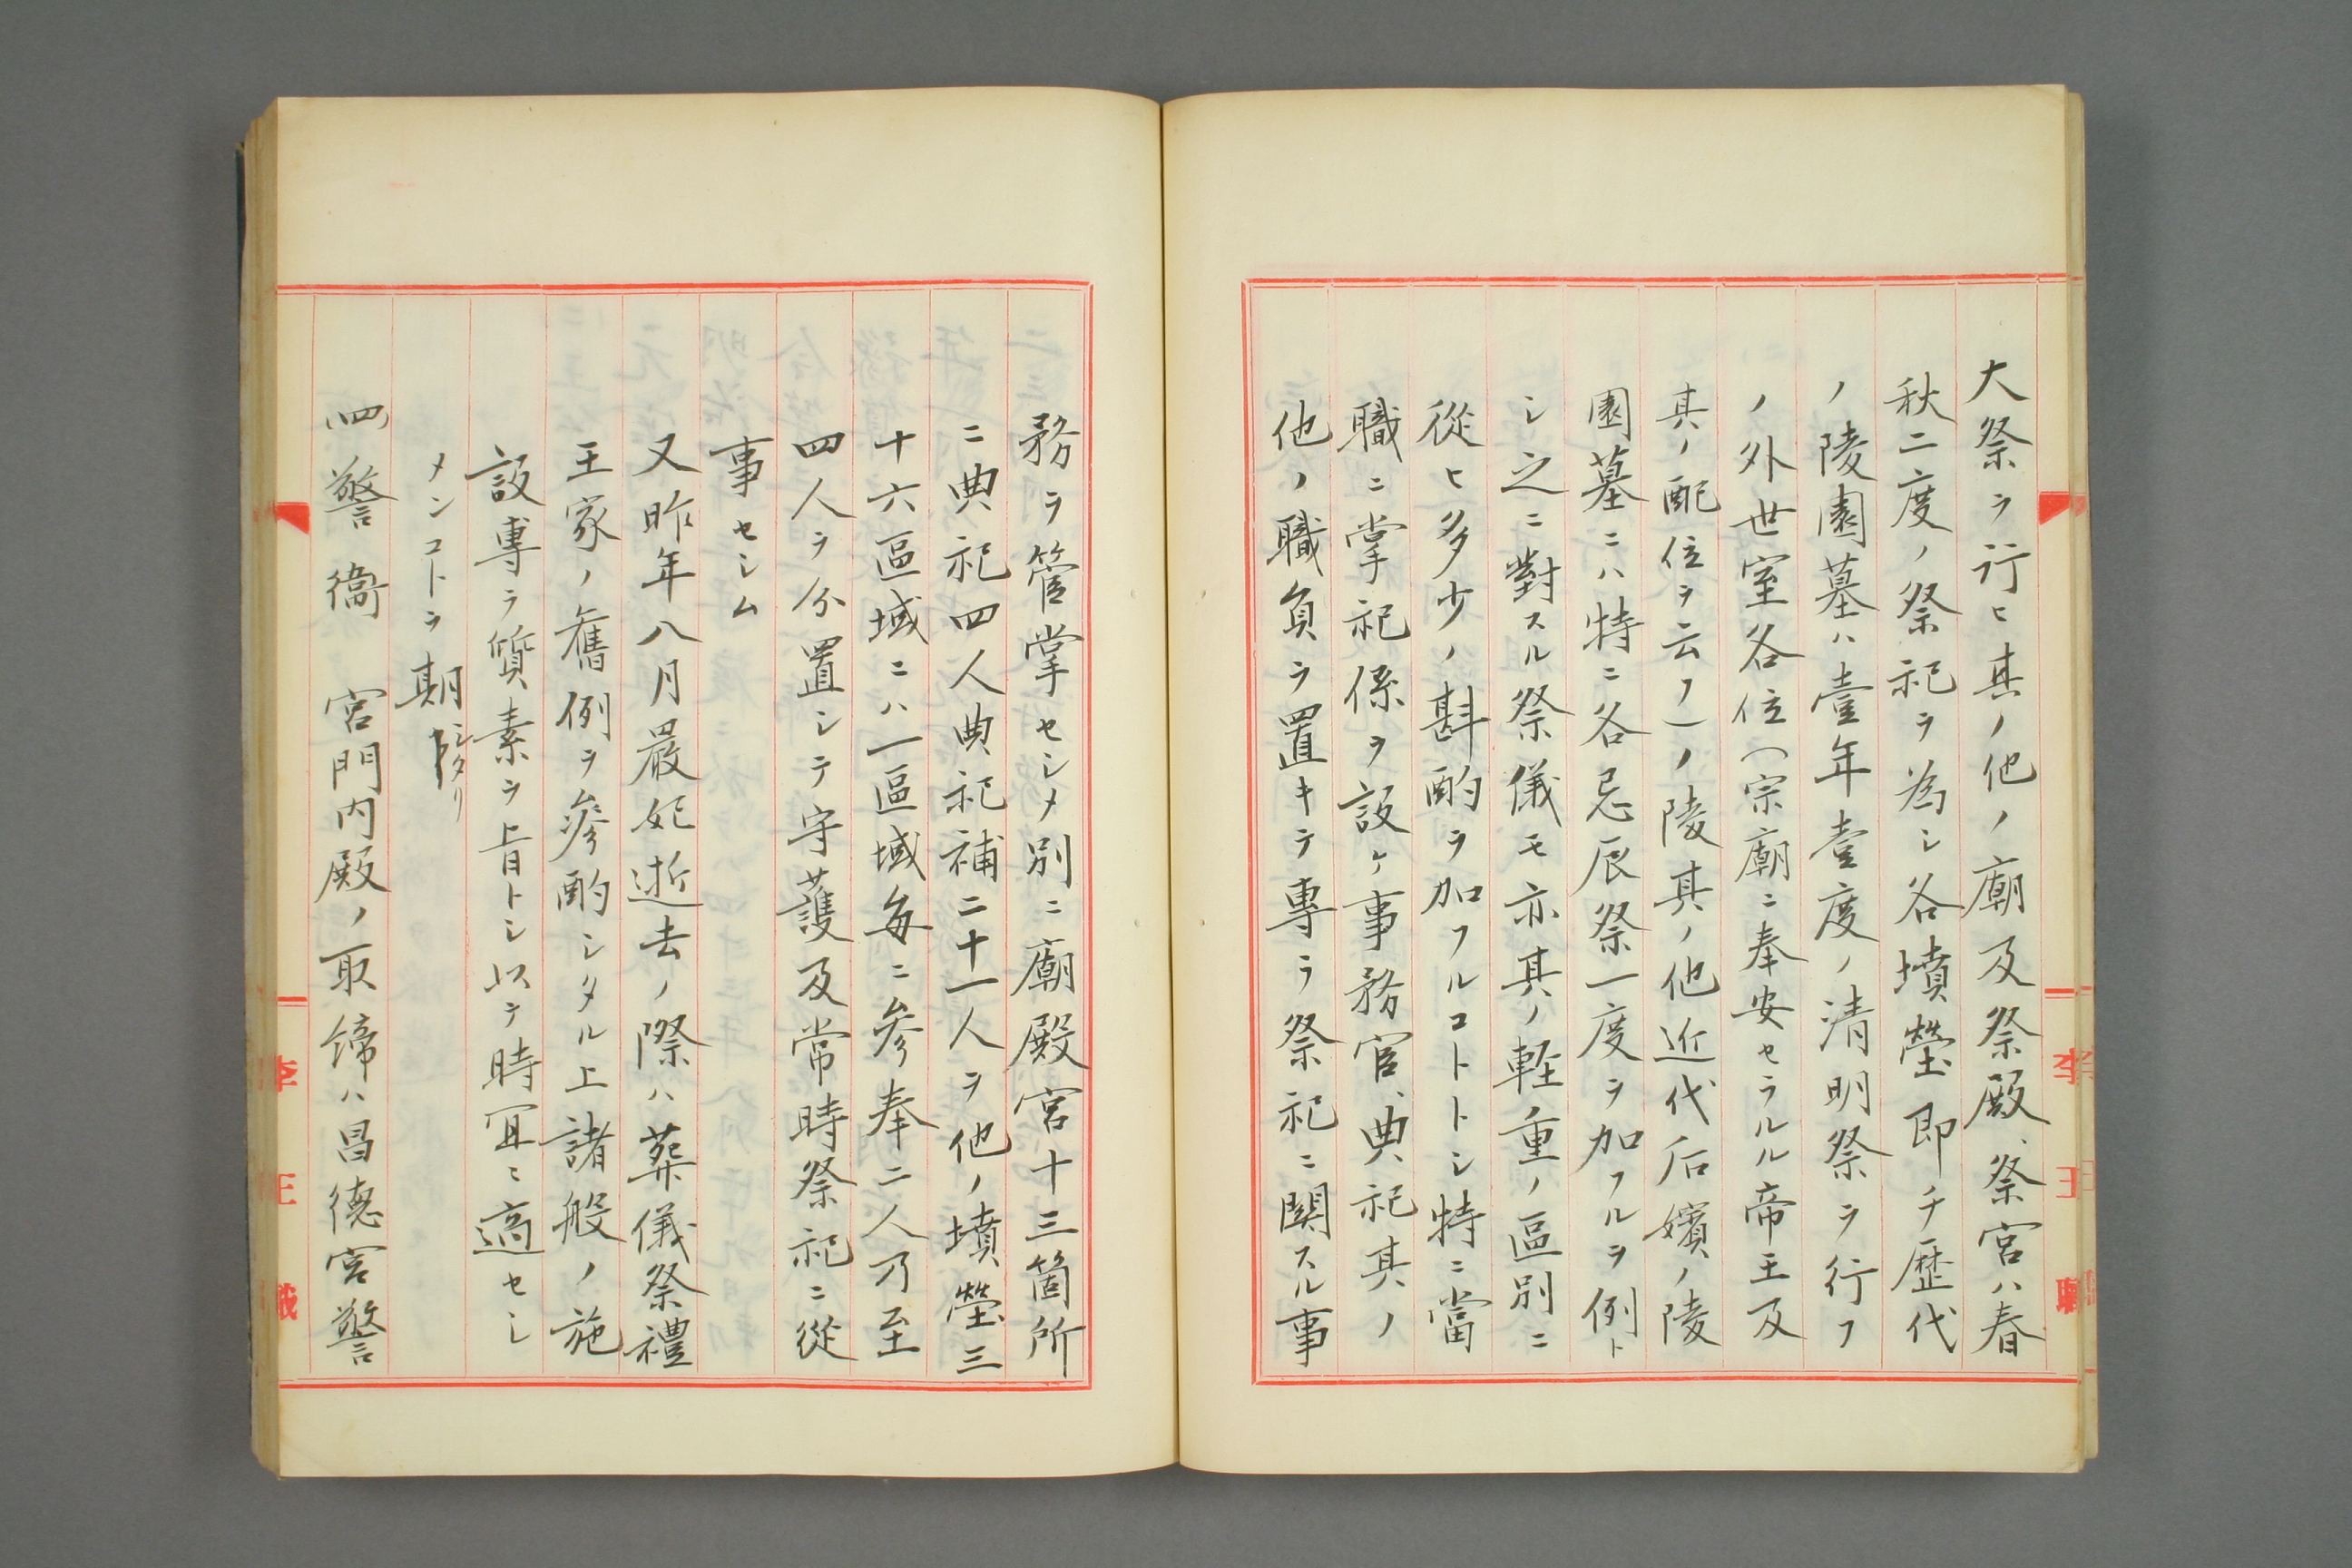 大祭ヲ行ヒ其ノ他ノ廟及祭殿、祭宮ハ春
秋二度ノ祭祀ヲ為シ各墳塋即チ歴代
ノ陵園墓ハ壹年壹度ノ清明祭ヲ行フ
ノ外世室各位(宗廟ニ奉安セラルル帝王及
其ノ配位ヲ云フ)ノ陵其ノ他近代后嬪ノ陵
園墓ニハ特ニ各忌辰祭一度ヲ加フルヲ例ト
シ之ニ對スル祭儀モ亦其ノ軽重ノ區別ニ
從ヒ多少ノ斟酌ヲ加フルコトトシ特ニ當
職ニ掌祀係ヲ設ケ事務官、典祀其ノ
他ノ職負ヲ置キテ専ラ祭祀ニ関スル事
李王職
務ヲ管掌セシメ別ニ廟殿宮十三箇所
ニ典祀四人典祀補二十一人ヲ他ノ墳塋三
十六區域ニハ一區域毎ニ参奉二人乃至
四人ヲ分置シテ守護及常時祭祀ニ從
事セシム
又昨年八月嚴妃逝去ノ際ハ葬儀祭禮
王家ノ舊例ヲ參酌シタル上諸般ノ施
設専ラ質素ヲ旨トシ以テ時宜ニ適セシ
メンコトヲ期シタリ
四 警衞 宮門内殿ノ取締ハ昌德宮警
李王職